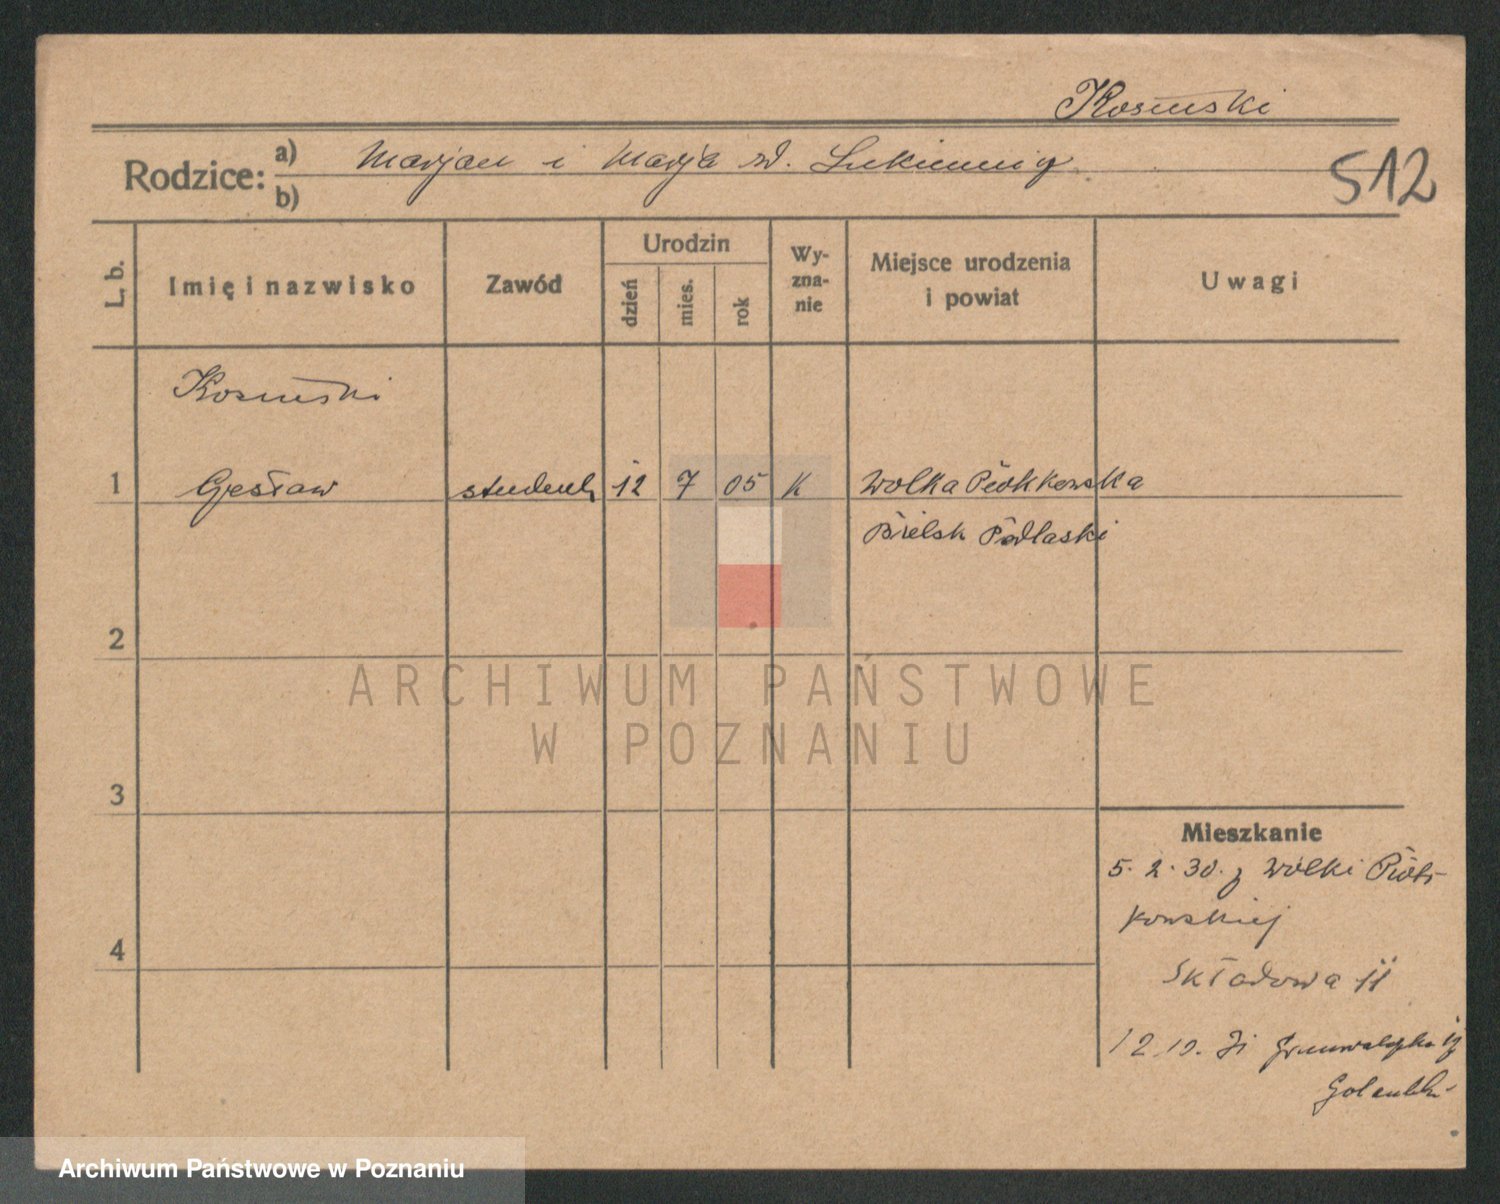 Kosiński
Rodzice: a) Marjan i Marja zd.
b)
512
L. b. Imię i nazwisko Zawód Urodzin dzień mies. rok Wyznanie Miejsce urodzenia i powiat Uwagi
Kosiński
1 Czesław student 12 7 05 K Wólka Piotrkowska
Bielsk Podlaski
2
ARCHIWUM PAŃSTWOWE
W POZNANIU
3
Mieszkanie
5. 2. 30. z Wólki Piotr-
kowskiej
4
Składowa 11
12.10. 31 Grunwaldzka
Archiwum Państwowe w Poznaniu